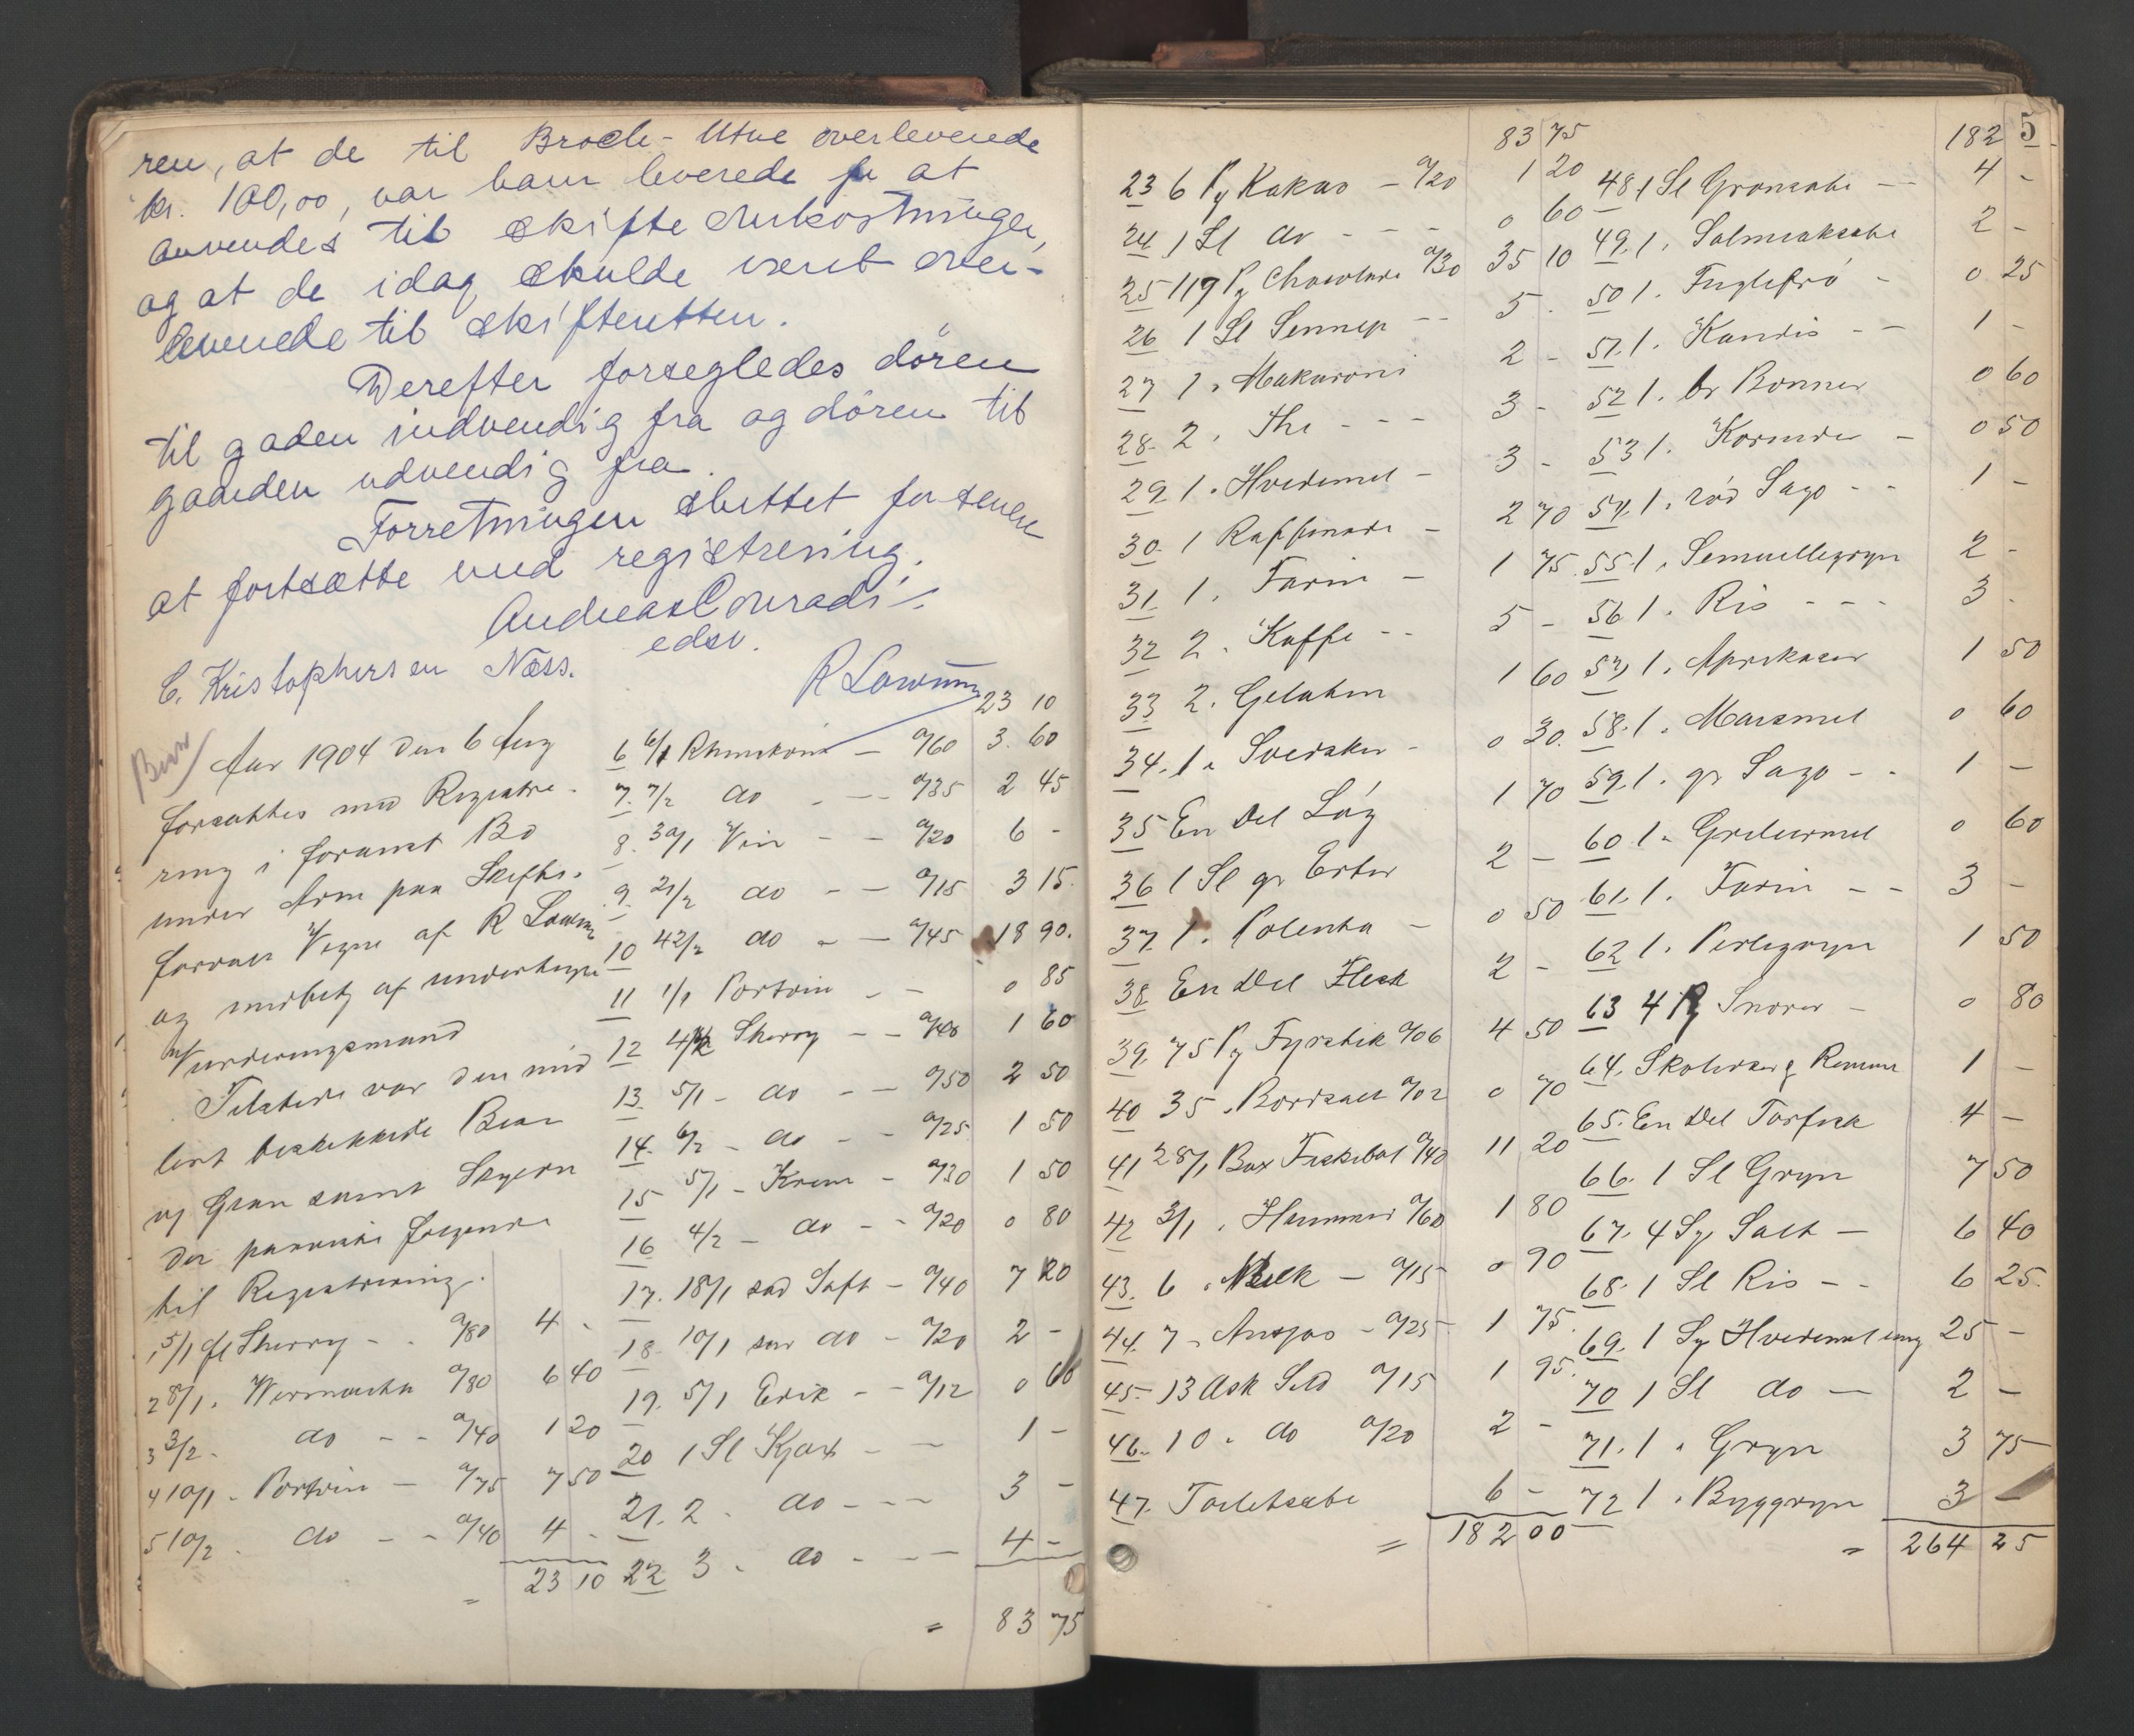 ren, at de til Broch-Utne overleverede
kr. 100,00, var ham leverede for at
anvendes til skifteomkostninger,
og at de idag skulde være over-
leverede til skifteretten.
Derefter forsegledes dören
til gaden indvendig fra og dören til
gaarden udvendig fra.
Forretningen sluttet for senere
at fortsætte med registrering.
Andreas Conradi
edsv.
C. Kristophersen Næss.
R Lowum
Aar 1904 den 6 Aug
forsattes med Registre-
ring i foranst Bo
under Arm paa Skifte-
forvalt Vegne af R Lowum
og undertegnede
Vurderingsmand
Tilstede var den mid
lert beskikkede Besv
og Gran samt Skyldn
Der paavistes følgende
til Registrering.
1 5/1 fl Sherry - a/80 4 -
2 8/1 . Vermouth a/80 6 40
3 3/2 . do - - a/40 1 20
4 10/1 . Portvin - a/75 7 50
5 10/2 . do - - a/40 4 -
= 23 10
23 10
6 6/1 Rhinskvin - a/60 3. 60
7. 7/2 do - - a/35 2 45
8. 30/1 Vin - - a/20 6 -
9 21/2 do - - a/15 3 15.
10 42/2 do - - a/45 18 90.
11 1/1 Portvin - - 0 85
12 4/2 Sherry - - a/40 1 60
13 5/1 - do - - a/50 2 50
14. 6/2 - do - - a/25 1 50
15 5/1 - Krem - a/30 1 50
16 4/2 - do - - a/20 0 80
17. 18/1 sød Saft - a/40 7 20
18 10/1 sur do - a/20 2 -
19. 5/1 Edik - - a/12 0 60
20 1 Sl Kjæx - - 1 -
21. 2 . do - - - 3 -
22 3 . do - - - 4 -
= 83 75
5
83 75
23 6 Pg Kakao - a/20 1 20
24 1 Sl do - - - 0 60
25 117 Pg Chocolade a/30 35 10
26 1 Sl Sennep - - 5 .
27 1 . Makaroni 2 -
28. 2 . The - - - 3 -
29 1 . Hvedemel - 3 -
30. 1 Raffinade - 2 70
31 1 . Farin - 1 75.
32 2 . Kaffe - - 5 -
33 2 . Gelatin 1 60
34. 1 . Svedsker - 0 30.
35 En Del Løg 1 70
36 1 Sl gr Erter 2 -
37. 1 . Polenta - 0 50
38 En Del Flesk 2 -
39. 75 Pg Fyrstik a/06 4 50
40 35 . Bordsalt a/02 0 70
41 28/1 Box Fiskebol a/40 11 20
42 3/1 . Hummer a/60 1 80
43. 6 . Melk - a/15 0 90
44. 7 - Ansjos - a/25 1 75.
45 - 13 Ask Sild a/15 1 95.
46. 10 . do a/20 2 -
47. Toiletsæbe 6 -
= 182 00
182
48 1 Sl Grønsæbe - - 4 -
49. 1 . Salmiaksæbe 2 -
50 1 . Fuglefrö - 0 25
51. 1 . Kandis - - 1 -
52 1 . br Bonner 0 60
53 1 . Korender - 0 50
54. 1 . rød Sago - - 1 -
55. 1 . Semuellegryn 2 -
56 1 . Ris - - - 3 .
57 1 . Aprikoser 1 50
58. 1 . Maismel 0 60
59. 1 . gr Sago - - 1 -
60 1 . Griluemel 0 60
61. 1 . Farin - - 3 -
62 1 . Perlegryn 1 50
63 4 Pg Snorer - 0 80
64. Skolisser & Remmer 1 -
65. En Del Torfisk 4 -
66. 1 Sl Gryn 7 50
67. 4 Sg Salt - 6 40
68. 1 Sl Ris - - 6 25.
69. 1 Sg Hvedemel 25 -
70 1 Sl do - 2 -
71. 1 . Gryn 3 75
72 1 . Byggryn 3 -
= 264 25